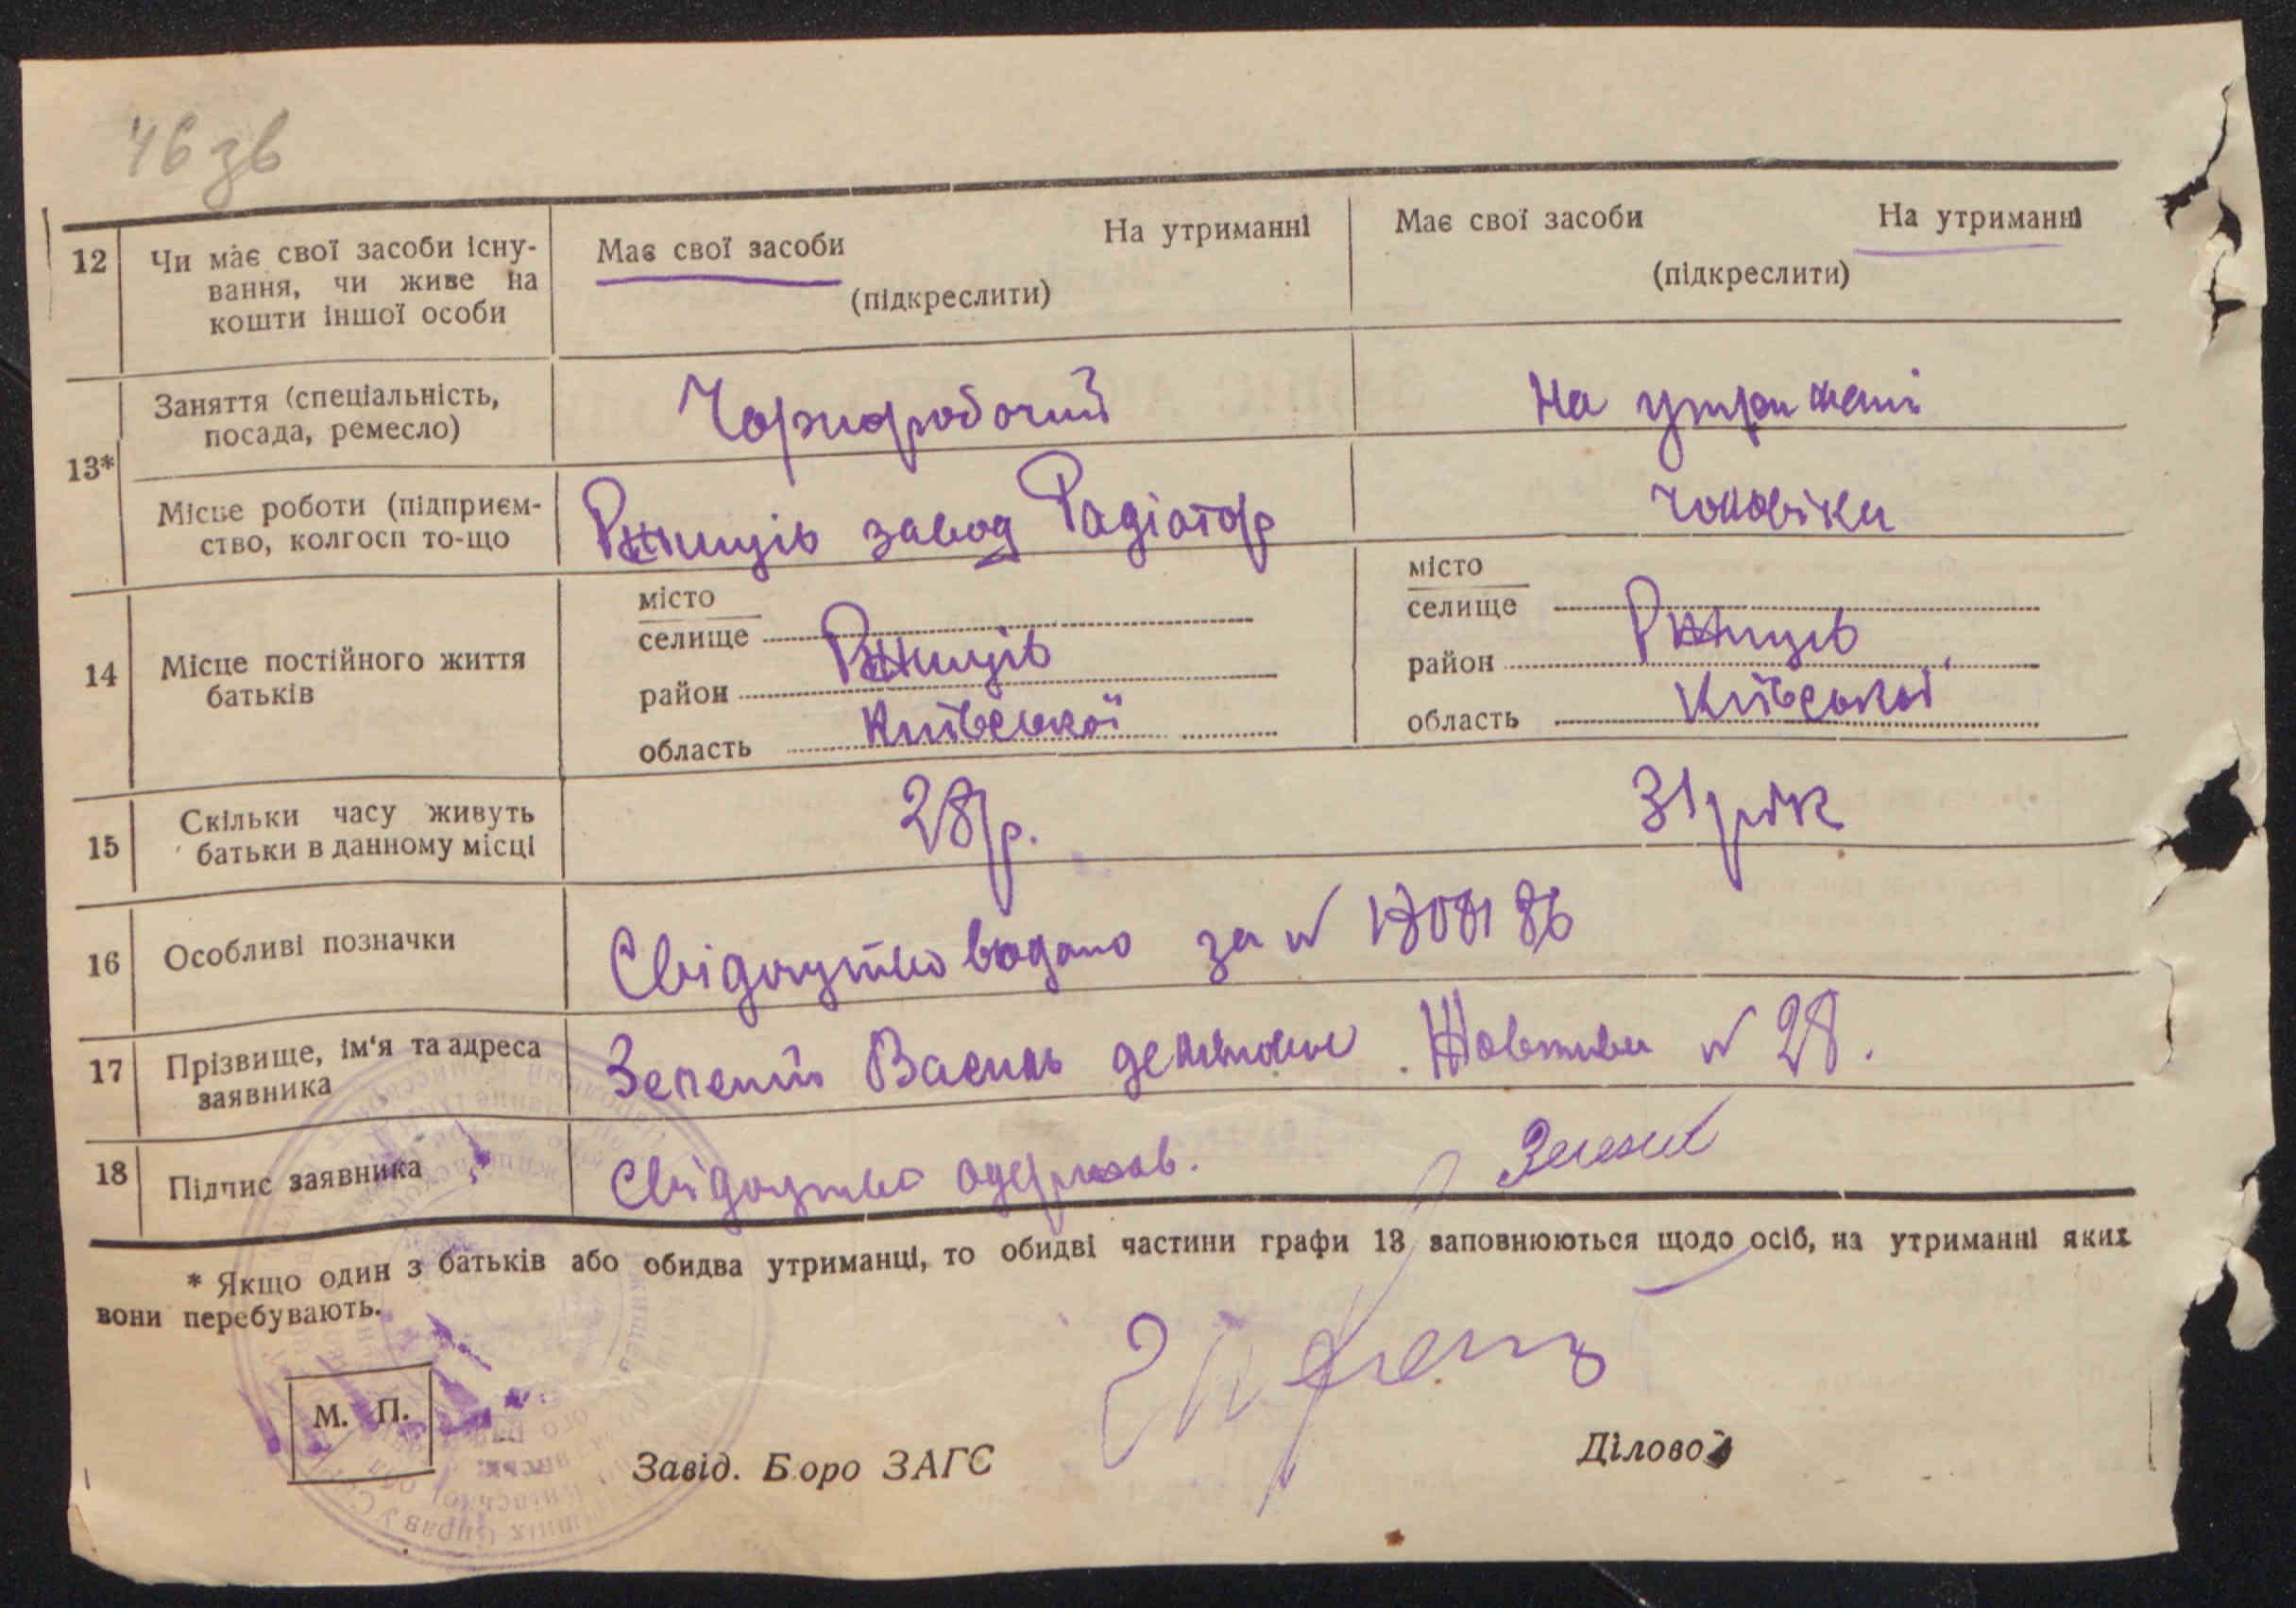 46 зв
На утриманні Має свої засоби На утриманні
12 Чи має свої засоби існу- Має свої засоби
вання, чи живе на (підкреслити) (підкреслити)
кошти іншої особи
Заняття (спеціальність, Чорноробочий На утримані
посада, ремесло)
13*
Місце роботи (підприєм- Ржищів завод Радіатор чоловіка
ство, колгосп то-що
місто місто
селище Ржищів селище Ржищів
14 Місце постійного життя
батьків
район район
область Київської область Київської
15 Скільки часу живуть 28 р. 31 рік
батьки в данному місці
16 Особливі позначки Свідоцтво видано за №
17 Прізвище, ім'я та адреса Зелений Василь Жовтнева № 28.
заявника
18 Підпис заявника Свідоцтво одержав. Зелений
* Якщо один з батьків або обидва утриманці, то обидві частини графи 13 заповнюються щодо осіб, на утриманні яких
вони перебувають.
М. П.
Завід. Бюро ЗАГС Діловод